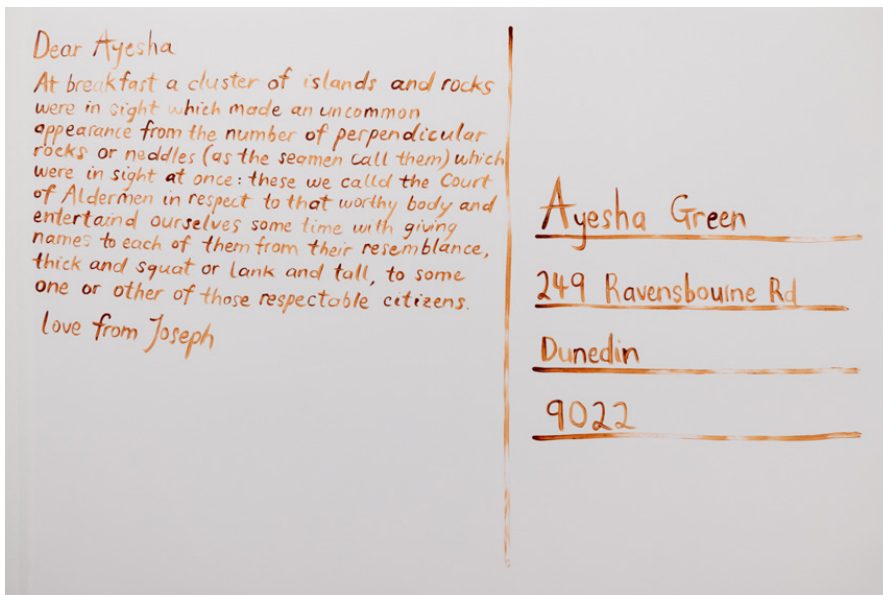 Dear Ayesha
At breakfast a cluster of islands and rocks
were in sight which made an uncommon
appearance from the number of perpendicular
rocks or neddles (as the seamen call them) which
were in sight at once: these we calld the Court
of Aldermen in respect to that worthy body and
entertaind ourselves some time with giving
names to each of them from their resemblance,
thick and squat or lank and tall, to some
one or other of those respectable citizens.
love from Joseph
Ayesha Green
249 Ravensbourne Rd
Dunedin
9022